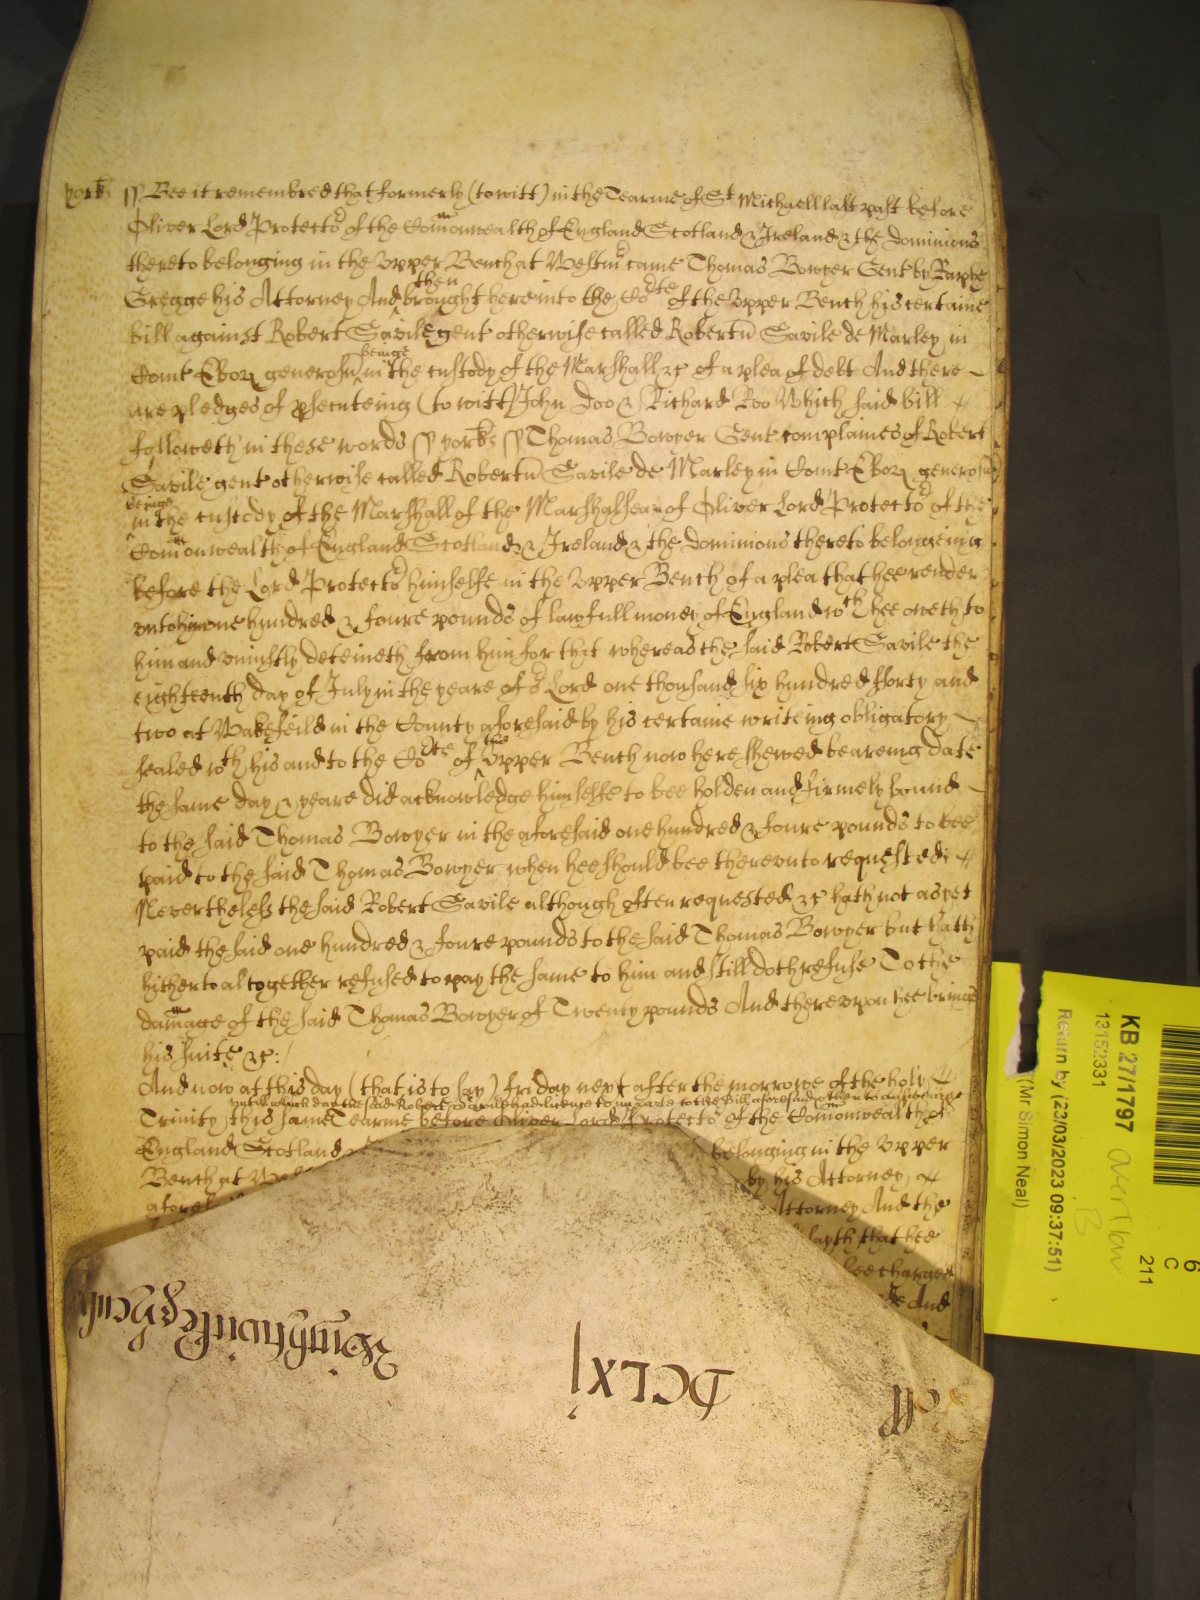 yorks ss Bee it remembred that formerly (to witt) in the Tearme of St Michaell last past before
Oliver Lord Protector of the Comonwealth of England Scotland & Ireland & the dominions
thereto belonging in the Upper Bench at Westmr came Thomas Bowyer Gent by Raphe
Gregge his Attorney And then brought here into the Corte of the Upper Bench his certaine
bill against Robert Savile gent otherwise called Robertu Savile de Marley in
Comt Ebor generosu beinge in the custody of the Marshall &c of a plea of debt And there
are pledges of psecuteing (to witt) John Doo & Richard Roo Which said bill
followeth in these words ss yorks ss Thomas Bowyer Gent complaines of Robert
Savile gent otherwise called Robertu Savile de Marley in Comt Ebor generosu
beinge in the custody of the Marshall of the Marshalsea of Oliver Lord Protector of the
Comonwealth of England Scotland & Ireland & the dominions thereto belongeing
before the Lord Protector himselfe in the Upper Bench of a plea that hee render
unto him one hundred & foure pounds of lawfull money of England wch hee oweth to
him and uniustly deteineth from him for that whereas the said Robert Savile the
eighteenth day of July in the yeare of or Lord one thousand six hundred fforty and
two at Wakefeild in the County aforesaid by his certaine writeing obligatory
sealed wth his and to the Corte of the Upper Bench now here shewed beareing date
the same day & yeare did acknowledge himselfe to bee holden and firmely bound
to the said Thomas Bowyer in the aforesaid one hundred & foure pounds to bee
paid to the said Thomas Bowyer when hee should bee thereunto requested:
Neverthelesse the said Robert Savile although often requested &c hath not as yet
paid the said one hundred & foure pounds to the said Thomas Bowyer but hath
hitherto altogether refused to pay the same to him and still doth refuse To the
damage of the said Thomas Bowyer of Twenty pounds And thereupon hee brings
his suite &c:
And now at this day (that is to say) friday next after the morrowe of the holy
untill which day the said Robert Savile had licence to imparle to the Bill aforesaid & then to
Trinity this same Tearme before Oliver Lord Protector of the Comonwealth of
England Scotland & belonging in the Upper
Bench at by his Attorney
Attorney And the
sayth that hee
bee charged
And
DCLXI
KB 27/1797
13152331
Return by (23/03/2023 09:37:51)
(Mr Simon Neal)
6
C
211